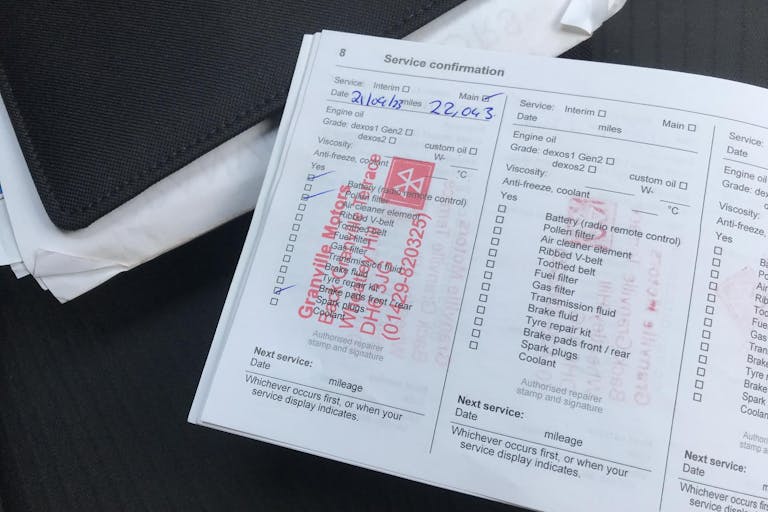 8
Service confirmation
Service: Interim
Main
Date 21/04/23 miles 22,043
Engine oil
Grade: dexos1 Gen2
dexos2
custom oil
Viscosity:
W-
Anti-freeze, coolant
°C
Yes
Battery (radio remote control)
Pollen filter
Air cleaner element
Ribbed V-belt
Toothed belt
Fuel filter
Gas filter
Transmission fluid
Brake fluid
Tyre repair kit
Brake pads front / rear
Spark plugs
Coolant
Granville Motors
Granville Terrace
Wheatley Hill
DH6 3JQ
(01429-820325)
Authorised repairer
stamp and signature
Next service:
Date
mileage
Whichever occurs first, or when your
service display indicates.
Service: Interim
Main
Date
miles
Engine oil
Grade: dexos1 Gen2
dexos2
custom oil
Viscosity:
W-
Anti-freeze, coolant
°C
Yes
Battery (radio remote control)
Pollen filter
Air cleaner element
Ribbed V-belt
Toothed belt
Fuel filter
Gas filter
Transmission fluid
Brake fluid
Tyre repair kit
Brake pads front / rear
Spark plugs
Coolant
Authorised repairer
stamp and signature
Next service:
Date
mileage
Whichever occurs first, or when your
service display indicates.
Service:
Date
Engine oil
Grade:
Viscosity:
Anti-freeze,
Yes
Fuel
Gas
Brake
Tyre
Brake
Spark
Coolan
Next service:
Date
Whichever occurs
service display